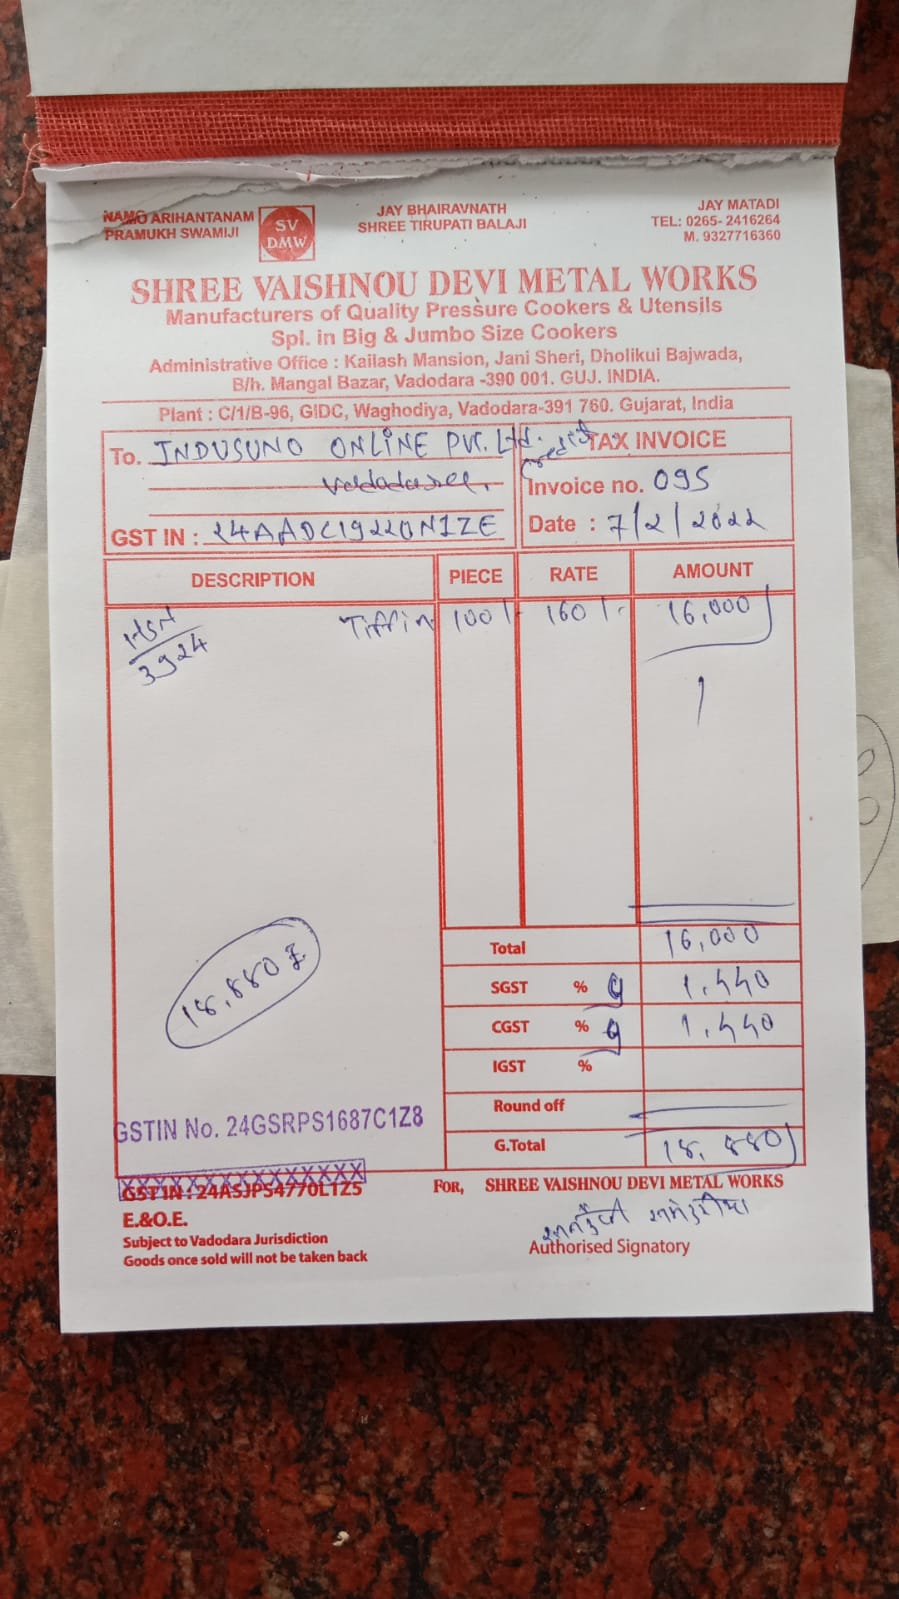 NAMO ARIHANTANAM
PRAMUKH SWAMIJI
SV
DMW
JAY BHAIRAVNATH
SHREE TIRUPATI BALAJI
JAY MATADI
TEL: 0265- 2416264
M. 9327716360
SHREE VAISHNOU DEVI METAL WORKS
Manufacturers of Quality Pressure Cookers & Utensils
Spl. in Big & Jumbo Size Cookers
Administrative Office : Kailash Mansion, Jani Sheri, Dholikui Bajwada,
B/h. Mangal Bazar, Vadodara -390 001. GUJ. INDIA.
Plant : C/1/B-96, GIDC, Waghodiya, Vadodara-391 760. Gujarat, India
To. INDUSUNO ONLINE PVt. Ltd.
GST IN : 24AADCI9220N1ZE
Credit TAX INVOICE
Invoice no. 095
Date : 7/2/2022
DESCRIPTION PIECE RATE AMOUNT
HSN
3924
Tiffin 100/- 160/- 16,000
Total 16,000
SGST % 9 1,440
CGST % 9 1,440
IGST %
Round off
G.Total 18,880
18,880
GSTIN No. 24GSRPS1687C1Z8
XXXXXXXXXXXXXXXX
GST IN : 24ASJPS4770L1Z5
E.&O.E.
Subject to Vadodara Jurisdiction
Goods once sold will not be taken back
FOR, SHREE VAISHNOU DEVI METAL WORKS
Authorised Signatory